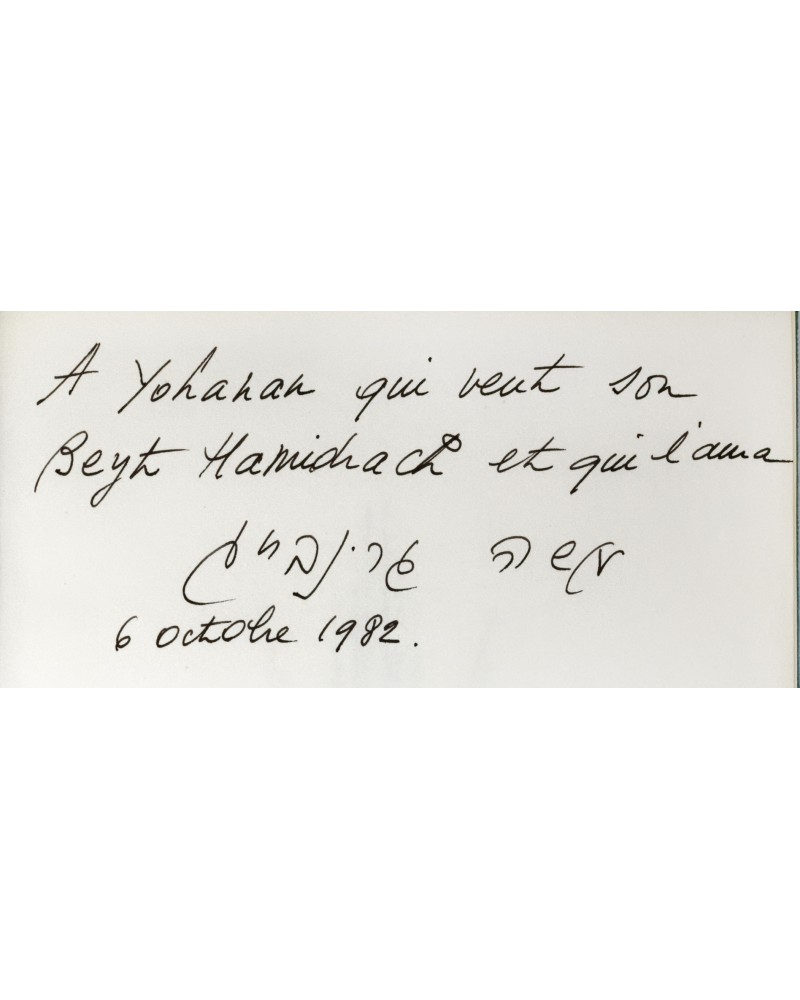 A Yohanan qui veut son
Beyt Hamidrach et qui l'aura
משה
6 octobre 1982.